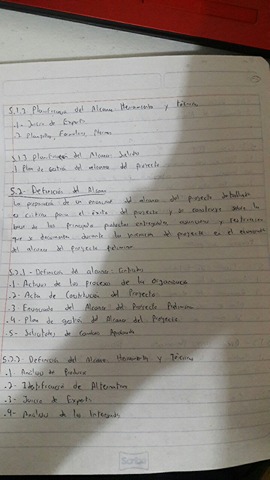 5.1.2 Planificación del Alcance: Herramientas y Técnicas
.1- Juicio de Expertos
.2 Plantillas, Formularios, Normas
5.1.3 Planificación del Alcance: Salidas
.1 Plan de Gestión del alcance del Proyecto
5.2- Definición del Alcance
La preparación de un enunciado del alcance del proyecto detallado
es crítica para el éxito del proyecto y se construye sobre la
base de los principales productos entregables, asunciones y restricciones
que se documentan durante la iniciación del proyecto en el enunciado
del alcance del proyecto preliminar
5.2.1- Definición del alcance: Entradas
.1- Activos de los procesos de la Organización
.2- Acta de Constitución del Proyecto
.3 Enunciado del Alcance del Proyecto Preliminar
.4- Plan de gestión del Alcance del Proyecto
.5- Solicitudes de Cambio Aprobadas
5.2.2- Definición del alcance: Herramientas y Técnicas
.1 Análisis del Producto
.2- Identificación de Alternativas
.3- Juicio de Expertos
.4- Análisis de los Interesados
Scribe